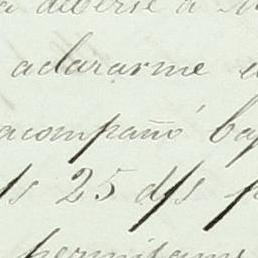 a deberse a
aclararme
acompañó baj
25 d/s p
permitame